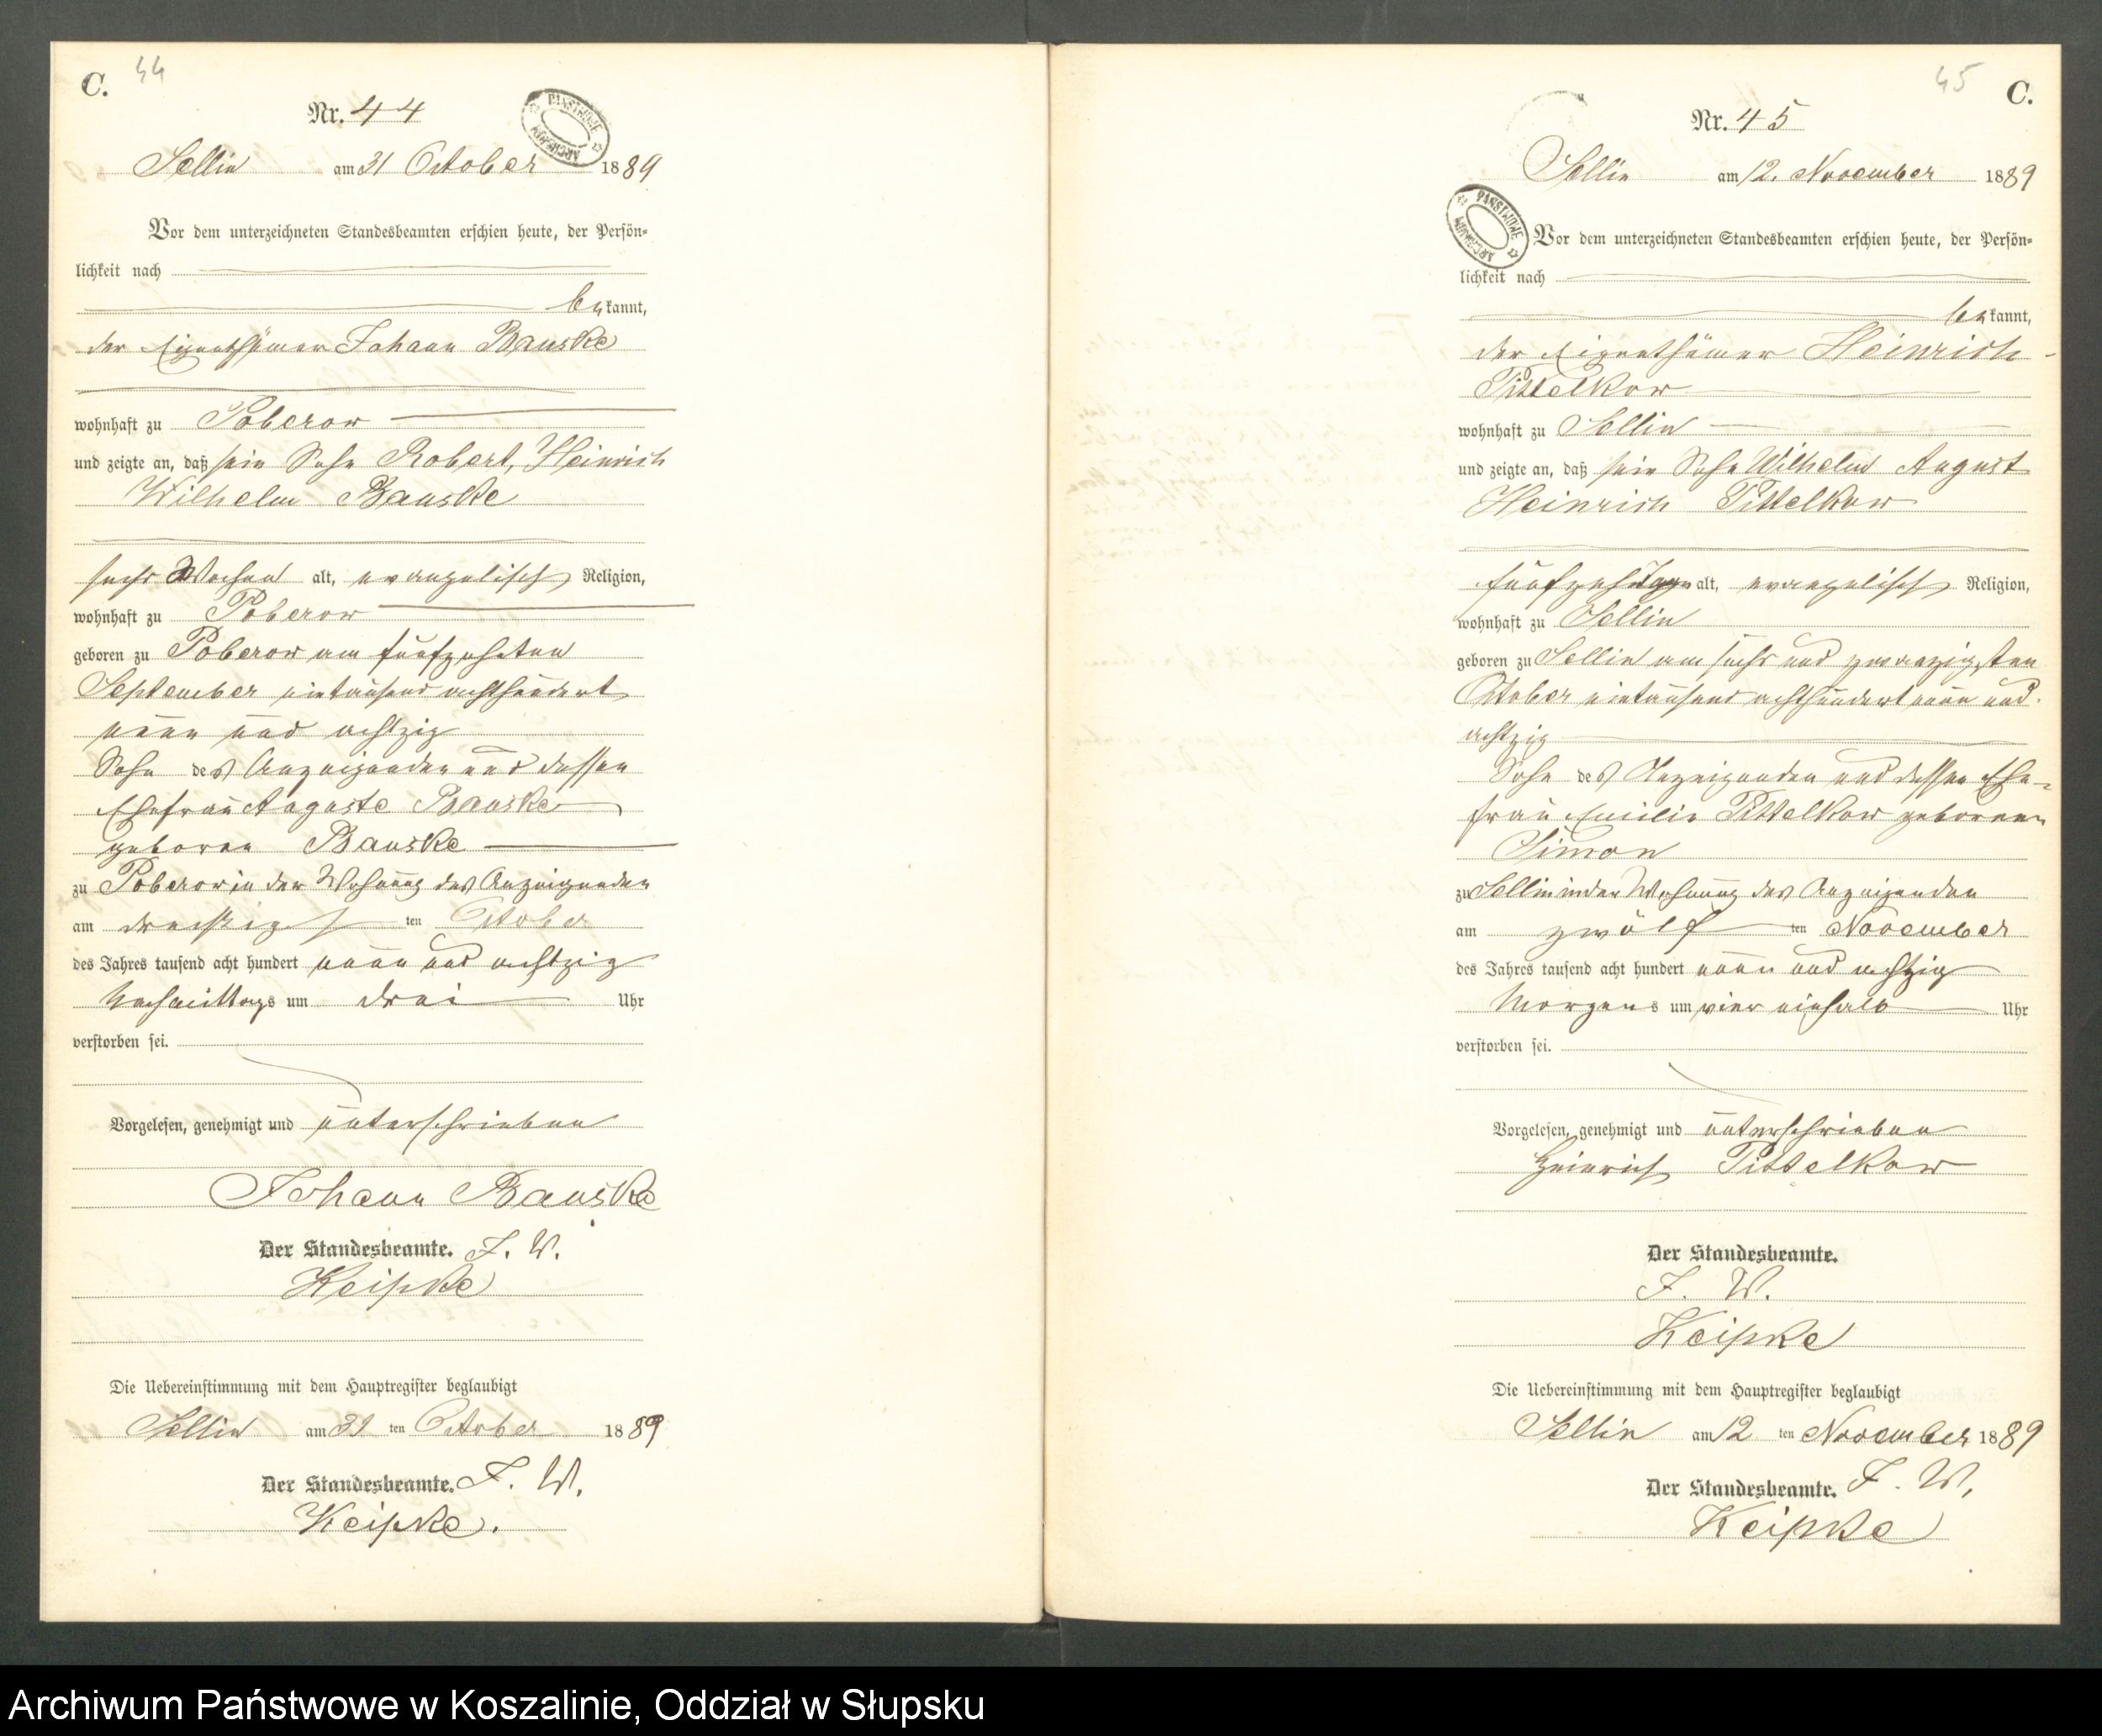 C. 44
Nr. 44
PAŃSTWOWE ARCHIWUM
Sellin am 31 October 1889
Vor dem unterzeichneten Standesbeamten erschien heute, der Persön-
lichkeit nach
bekannt,
der Eigenthümer Johann Banske
wohnhaft zu Poberow
und zeigte an, daß sein Sohn Robert, Heinrich
Wilhelm Banske
sechs Wochen alt, evangelisch Religion,
wohnhaft zu Poberow
geboren zu Poberow am fünfzehnten
September eintausend achthundert
neun und achtzig
Sohn des Anzeigenden und dessen
Ehefrau Auguste Banske
geboren Banske
zu Poberow in der Wohnung des Anzeigenden
am dreißigsten October
des Jahres tausend acht hundert neun und achtzig
Nachmittags um drei Uhr
verstorben sei.
Vorgelesen, genehmigt und unterschrieben
Johann Banske
Der Standesbeamte. F. W.
Keipke
Die Uebereinstimmung mit dem Hauptregister beglaubigt
Sellin am 31 ten October 1889
Der Standesbeamte. F. W.
Keipke.
45 C.
Nr. 45
Sellin am 12. November 1889
PAŃSTWOWE ARCHIWUM
Vor dem unterzeichneten Standesbeamten erschien heute, der Persön-
lichkeit nach
bekannt,
der Eigenthümer Heinrich
Tittelkow
wohnhaft zu Sellin
und zeigte an, daß sein Sohn Wilhelm August
Heinrich Tittelkow
fünfzehn Tage alt, evangelisch Religion,
wohnhaft zu Sellin
geboren zu Sellin am sechs und zwanzigsten
October eintausend achthundert neun und
achtzig
Sohn des Anzeigenden und dessen Ehe-
frau Emilie Tittelkow geborenen
Simon
zu Sellin in der Wohnung des Anzeigenden
am zwölf ten November
des Jahres tausend acht hundert neun und achtzig
Morgens um vier einhalb Uhr
verstorben sei.
Vorgelesen, genehmigt und unterschrieben
Heinrich Tittelkow
Der Standesbeamte.
F. W.
Keipke
Die Uebereinstimmung mit dem Hauptregister beglaubigt
Sellin am 12 ten November 1889
Der Standesbeamte. F. W.
Keipke
Archiwum Państwowe w Koszalinie, Oddział w Słupsku